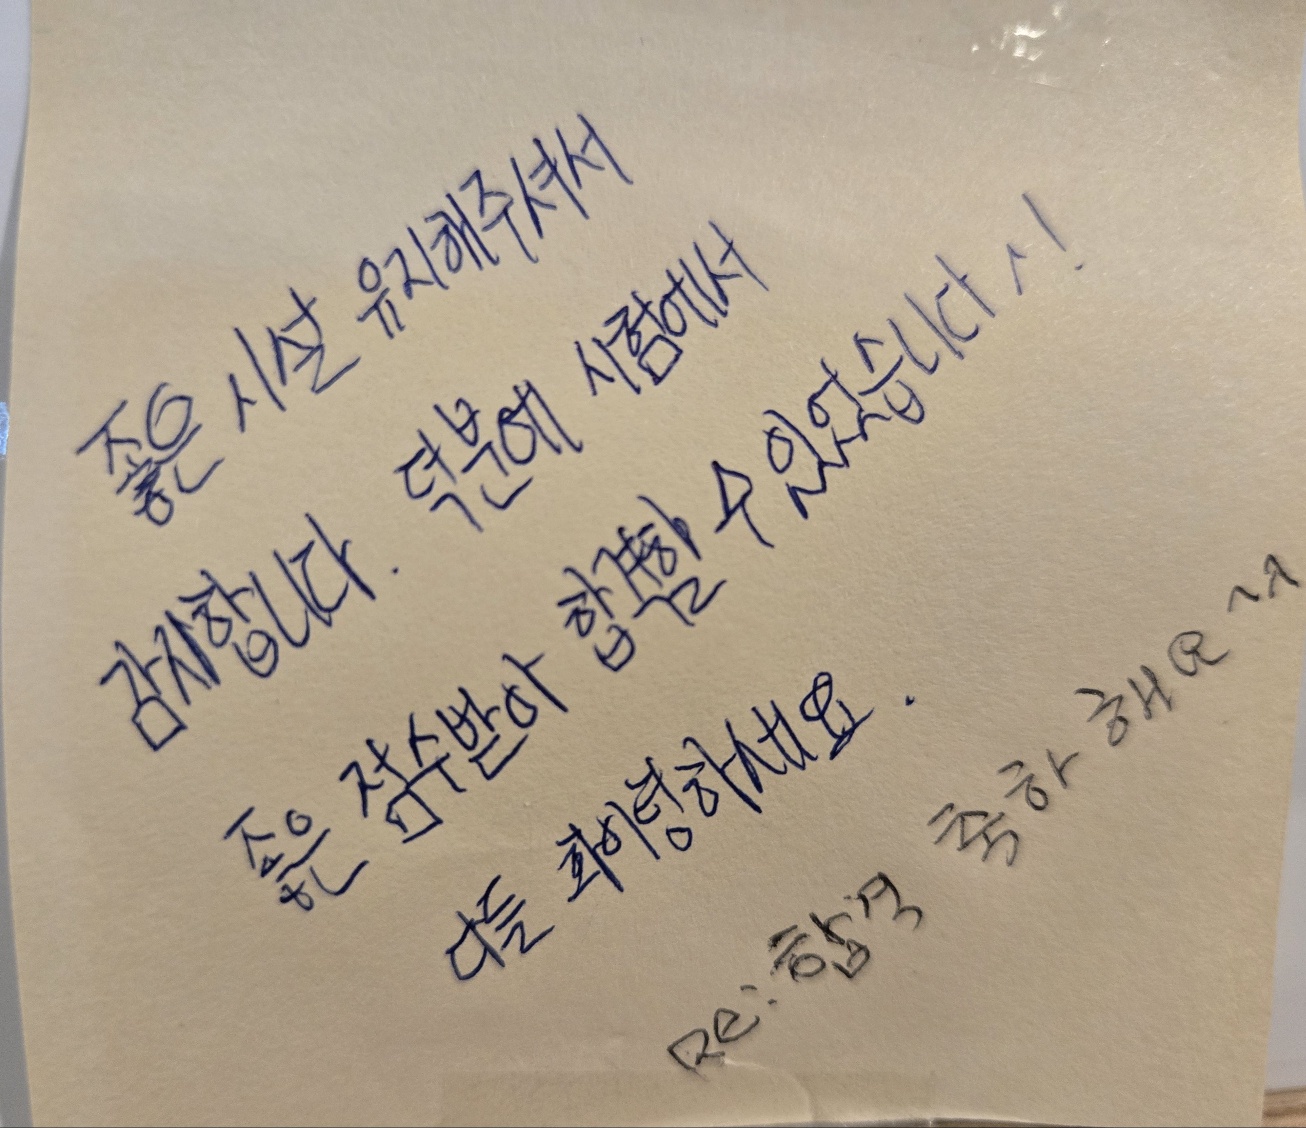 좋은 시설 유지해주셔서
감사합니다. 덕분에 시험에서
좋은 점수받아 합격할 수 있었습니다 ^!
다들 화이팅하세요.
Re: 합격 축하 해요 ^^